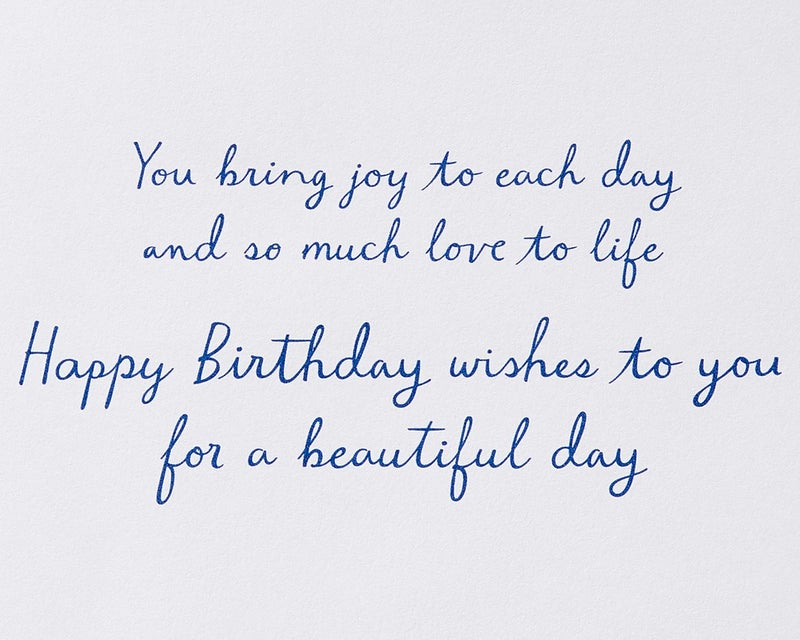 You bring joy to each day
and so much love to life
Happy Birthday wishes to you
for a beautiful day